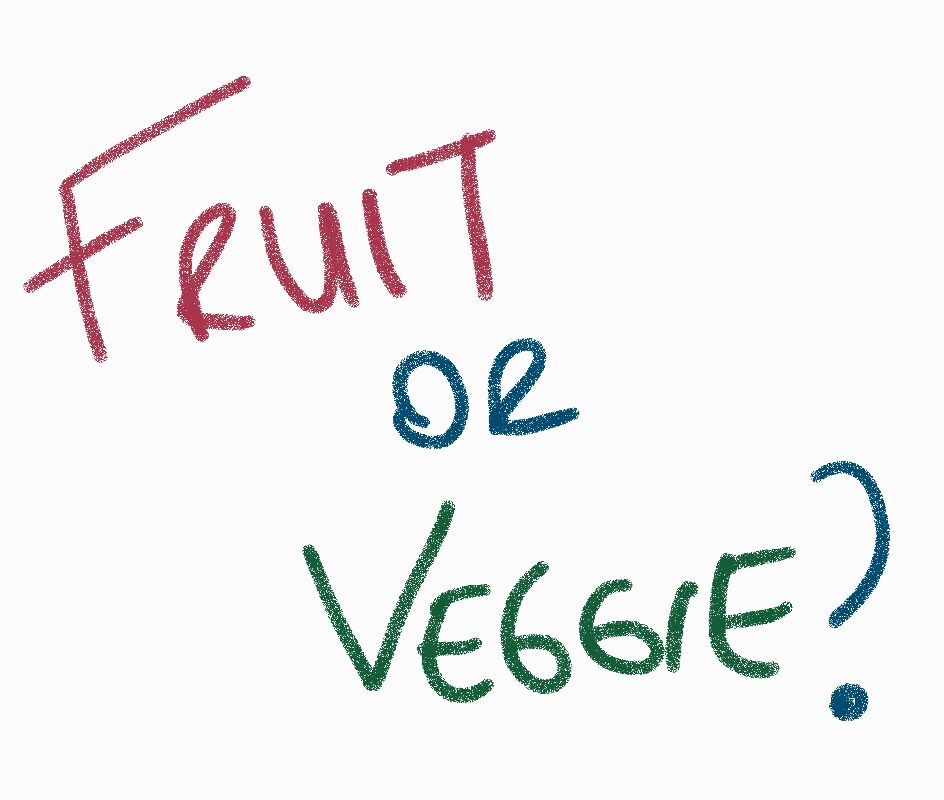 FRUIT
OR
VEGGIE?